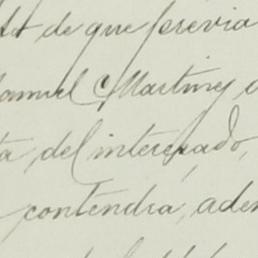 de que previa
Manuel C. Martinez
del interesado,
contendrá, adem